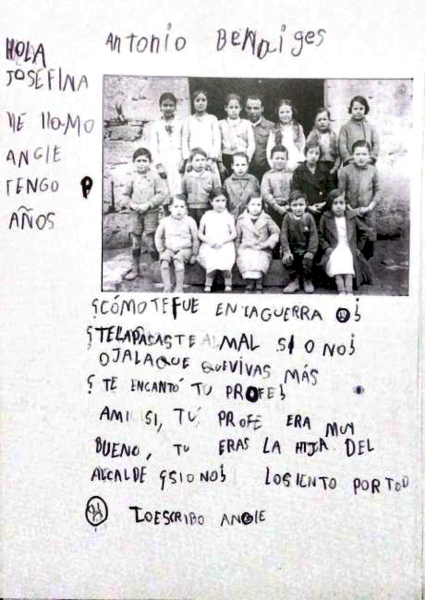 ANTONIO BENAIGES
HOLA
JOSEFINA
ME LLAMO
ANGIE
TENGO
AÑOS
¿CÓMO TE FUE EN LA GUERRA
¿TE LA PASASTE AL MAL SI O NO?
OJALA QUE QUE VIVAS MÁS
¿ TE ENCANTÓ TU PROFE?
AMI SI, TU PROFE ERA MUY
BUENO, TU ERAS LA HIJA DEL
ALCALDE ¿SI O NO? LO SIENTO POR TODO
LO ESCRIBO ANGIE